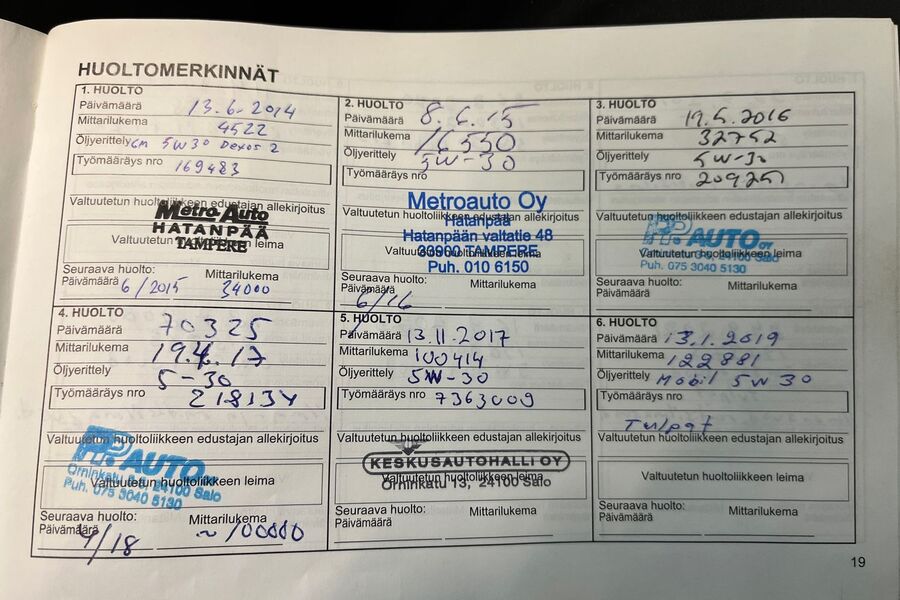 HUOLTOMERKINNÄT
1. HUOLTO
Päivämäärä 13.6.2014
Mittarilukema 4522
Öljyerittely GM 5W30 Dexos 2
Työmääräys nro 169483
Valtuutetun huoltoliikkeen edustajan allekirjoitus
Metro-Auto
HATANPÄÄ
Valtuutetun huoltoliikkeen leima
TAMPERE
Seuraava huolto: Mittarilukema
Päivämäärä 6/2015 34000
2. HUOLTO
Päivämäärä 8.6.15
Mittarilukema 16550
Öljyerittely 5W-30
Työmääräys nro
Metroauto Oy
Valtuutetun huoltoliikkeen edustajan allekirjoitus
Hatanpää
Hatanpään valtatie 48
Valtuutetun huoltoliikkeen leima
33900 TAMPERE
Puh. 010 6150
Seuraava huolto: Mittarilukema
Päivämäärä 6/16
3. HUOLTO
Päivämäärä 17.5.2016
Mittarilukema 32752
Öljyerittely 5W-30
Työmääräys nro 209251
Valtuutetun huoltoliikkeen edustajan allekirjoitus
PP. AUTO OY
Valtuutetun huoltoliikkeen leima
24100 Salo
Puh. 075 3040 5130
Seuraava huolto: Mittarilukema
Päivämäärä
4. HUOLTO
Päivämäärä 70325
Mittarilukema 19.4.17
Öljyerittely 5-30
Työmääräys nro
Valtuutetun huoltoliikkeen edustajan allekirjoitus
PP. AUTO
Valtuutetun huoltoliikkeen leima
Örninkatu 24100 Salo
Puh. 075 3040 5130
Seuraava huolto: Mittarilukema
Päivämäärä 4/18 ~100000
5. HUOLTO
Päivämäärä 13.11.2017
Mittarilukema 100414
Öljyerittely 5W-30
Työmääräys nro 7363009
Valtuutetun huoltoliikkeen edustajan allekirjoitus
KESKUSAUTOHALLI OY
Valtuutetun huoltoliikkeen leima
Örninkatu 13, 24100 Salo
Seuraava huolto: Mittarilukema
Päivämäärä
6. HUOLTO
Päivämäärä 13.1.2019
Mittarilukema 122881
Öljyerittely Mobil 5W 30
Työmääräys nro
Tulpat
Valtuutetun huoltoliikkeen edustajan allekirjoitus
Valtuutetun huoltoliikkeen leima
Seuraava huolto: Mittarilukema
Päivämäärä
19